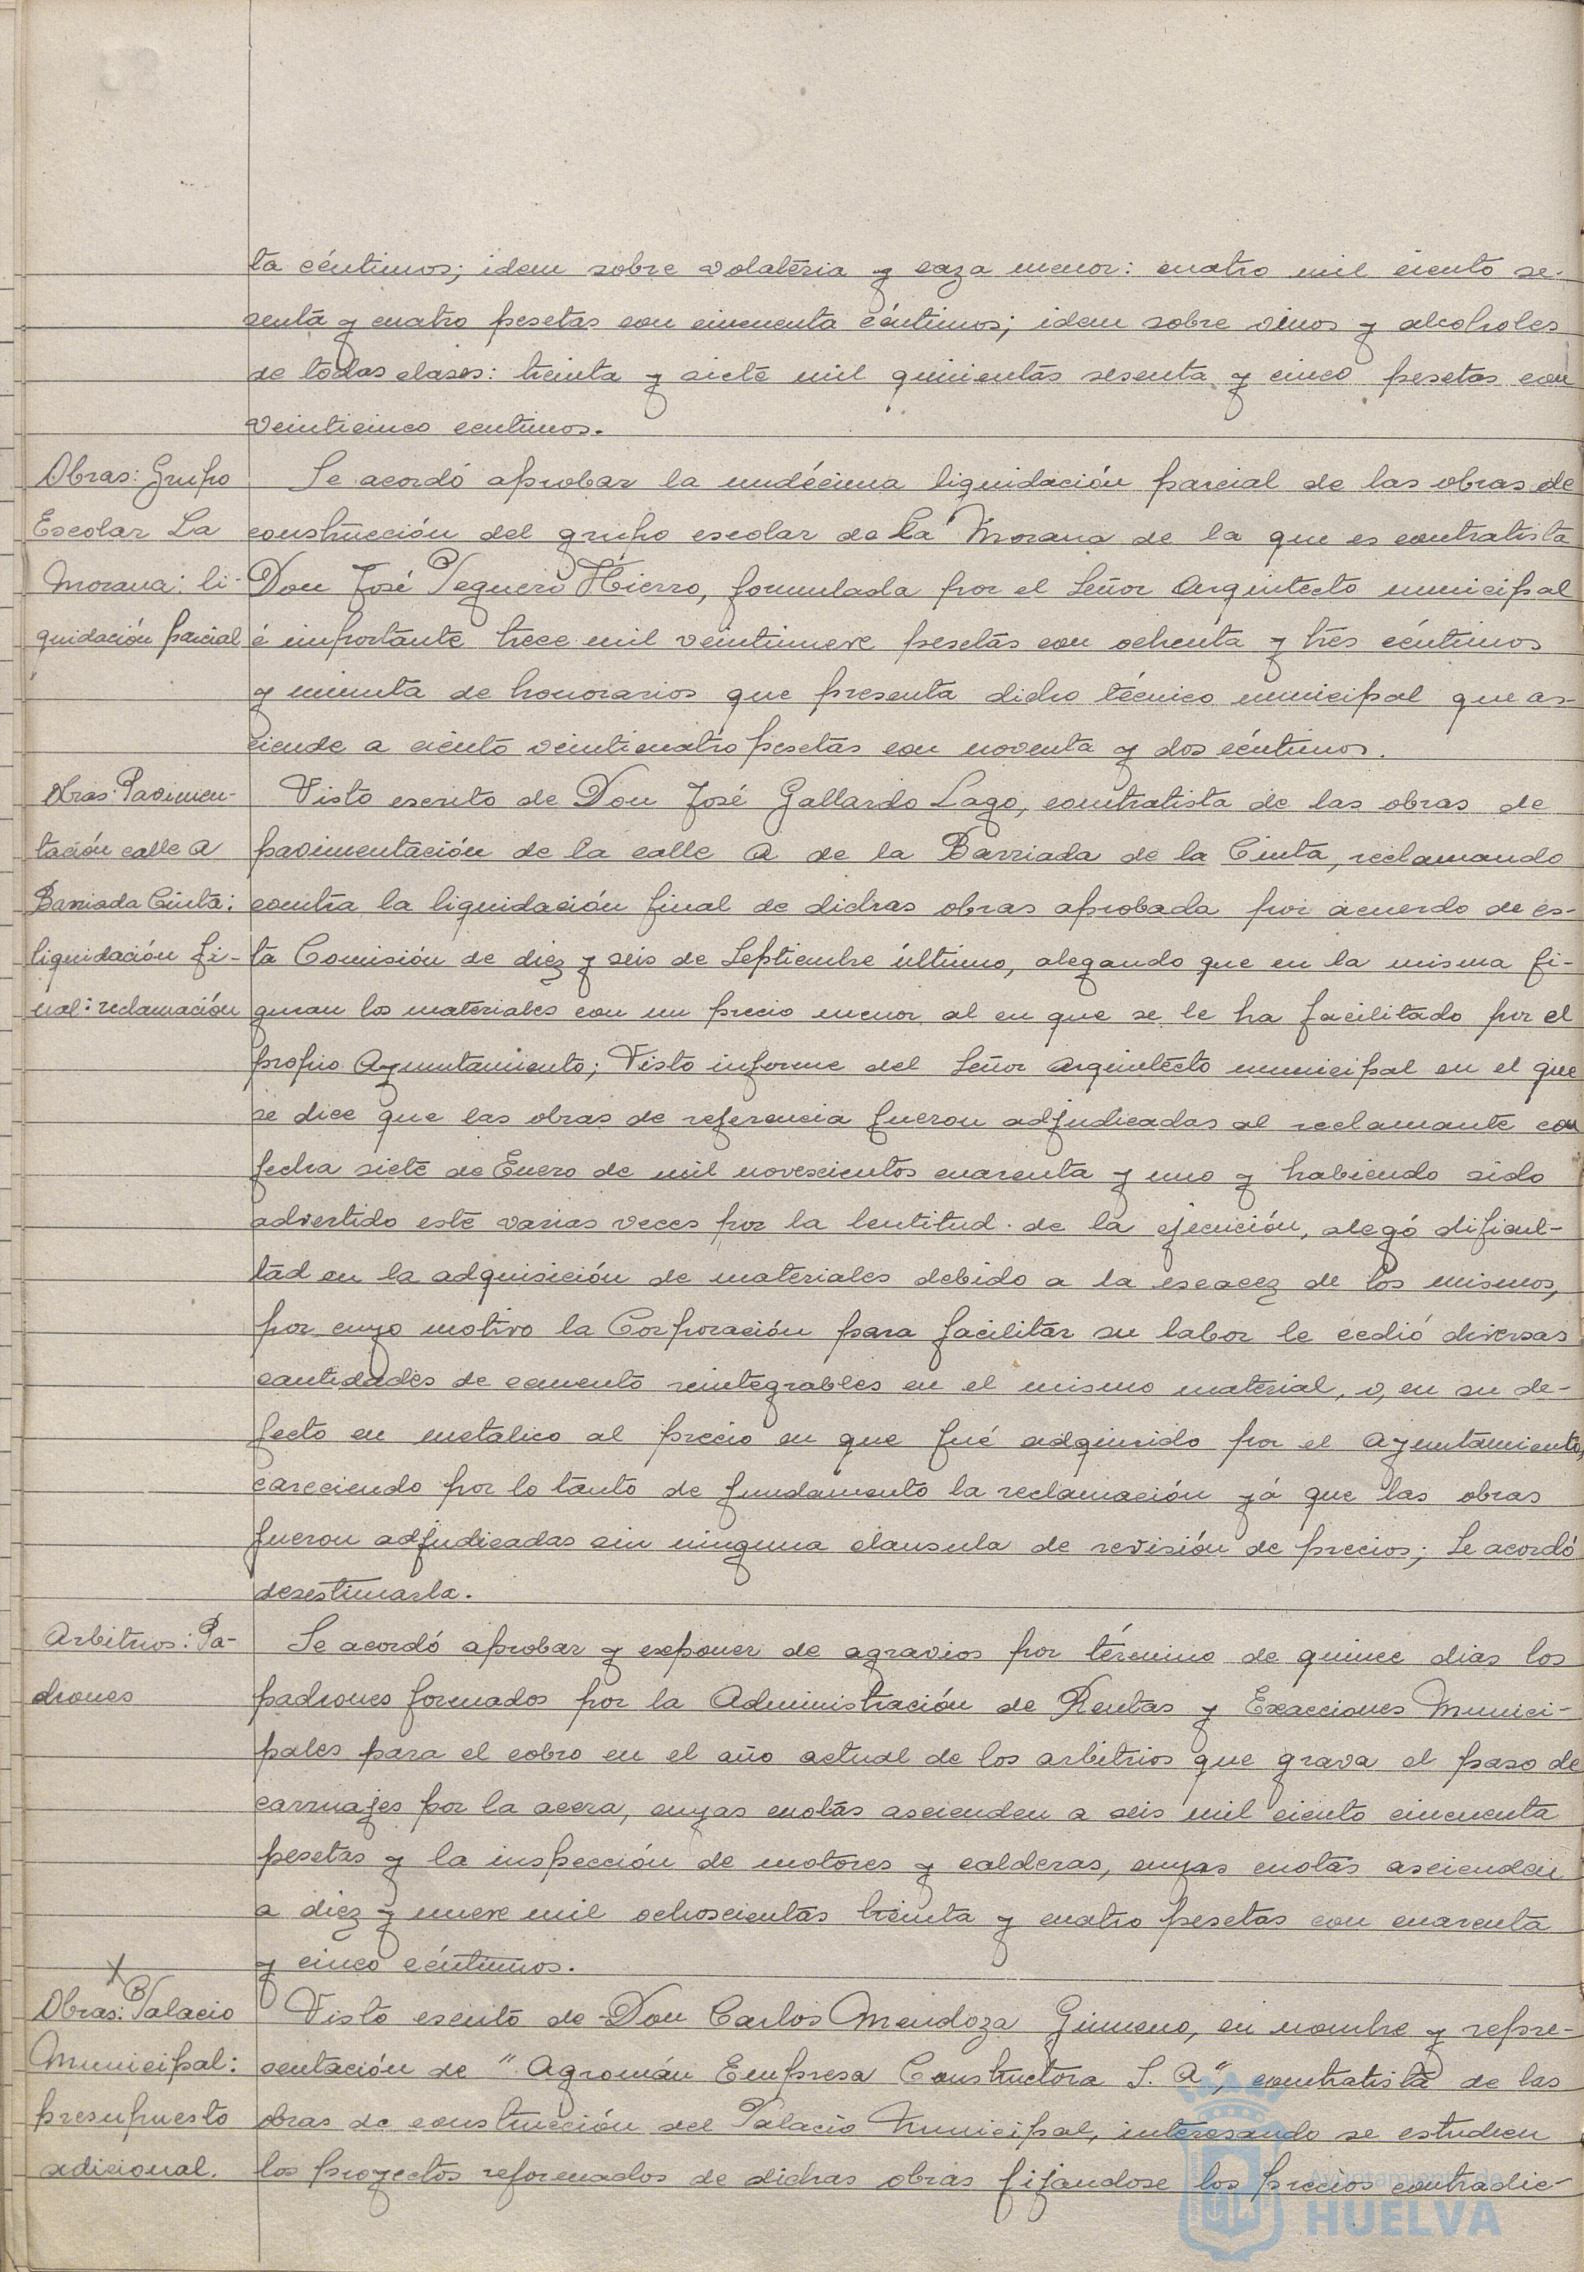 ta céntimos; idem sobre volatería y caza menor: cuatro mil ciento se-
senta y cuatro pesetas con cincuenta céntimos; idem sobre vinos y alcoholes
de todas clases: treinta y siete mil quinientas sesenta y cinco pesetas con
veinticinco centimos.
Obras: Grupo
Escolar La
Morana: li-
quidación parcial
Se acordó aprobar la undécima liquidación parcial de las obras de
construcción del grupo escolar de La Morana de la que es contratista
Don José Peguero Hierro, formulada por el Señor Arquitecto municipal
é importante trece mil veintinueve pesetas con ochenta y tres céntimos
y minuta de honorarios que presenta dicho técnico municipal que as-
ciende a ciento veinticuatro pesetas con noventa y dos céntimos.
Obras: Pavimen-
tación calle A
Barriada Cinta:
liquidación fi-
nal: reclamación
Visto escrito de Don José Gallardo Lago, contratista de las obras de
pavimentación de la calle A de la Barriada de la Cinta, reclamando
contra la liquidación final de dichas obras aprobada por acuerdo de es-
ta Comisión de diez y seis de Septiembre último, alegando que en la misma fi-
guran los materiales con un precio menor al en que se le ha facilitado por el
propio Ayuntamiento; Visto informe del Señor Arquitecto municipal en el que
se dice que las obras de referencia fueron adjudicadas al reclamante con
fecha siete de Enero de mil novescientos cuarenta y uno y habiendo sido
advertido este varias veces por la lentitud de la ejecución, alegó dificul-
tad en la adquisición de materiales debido a la escacez de los mismos,
por cuyo motivo la Corporación para facilitar su labor le cedió diversas
cantidades de cemento reintegrables en el mismo material, o, en su de-
fecto en metalico al precio en que fué adquirido por el Ayuntamiento,
careciendo por lo tanto de fundamento la reclamación yá que las obras
fueron adjudicadas sin ninguna clausula de revisión de precios; Se acordó
desestimarla.
Arbitrios: Pa-
drones
Se acordó aprobar y exponer de agravios por término de quince dias los
padrones formados por la Administración de Rentas y Exacciones Munici-
pales para el cobro en el año actual de los arbitrios que grava el paso de
carruajes por la acera, cuyas cuotas ascienden a seis mil ciento cincuenta
pesetas y la inspección de motores y calderas, cuyas cuotas ascienden
a diez y nueve mil ochoscientas treinta y cuatro pesetas con cuarenta
y cinco céntimos.
X
Obras: Palacio
Municipal:
presupuesto
adicional.
Visto escrito de Don Carlos Mendoza Gimeno, en nombre y repre-
sentación de "Agromán Empresa Constructora S. A", contratista de las
obras de construcción del Palacio Municipal, interesando se estudien
los proyectos reformados de dichas obras fijandose los precios contradic-
Ayuntamiento de
HUELVA